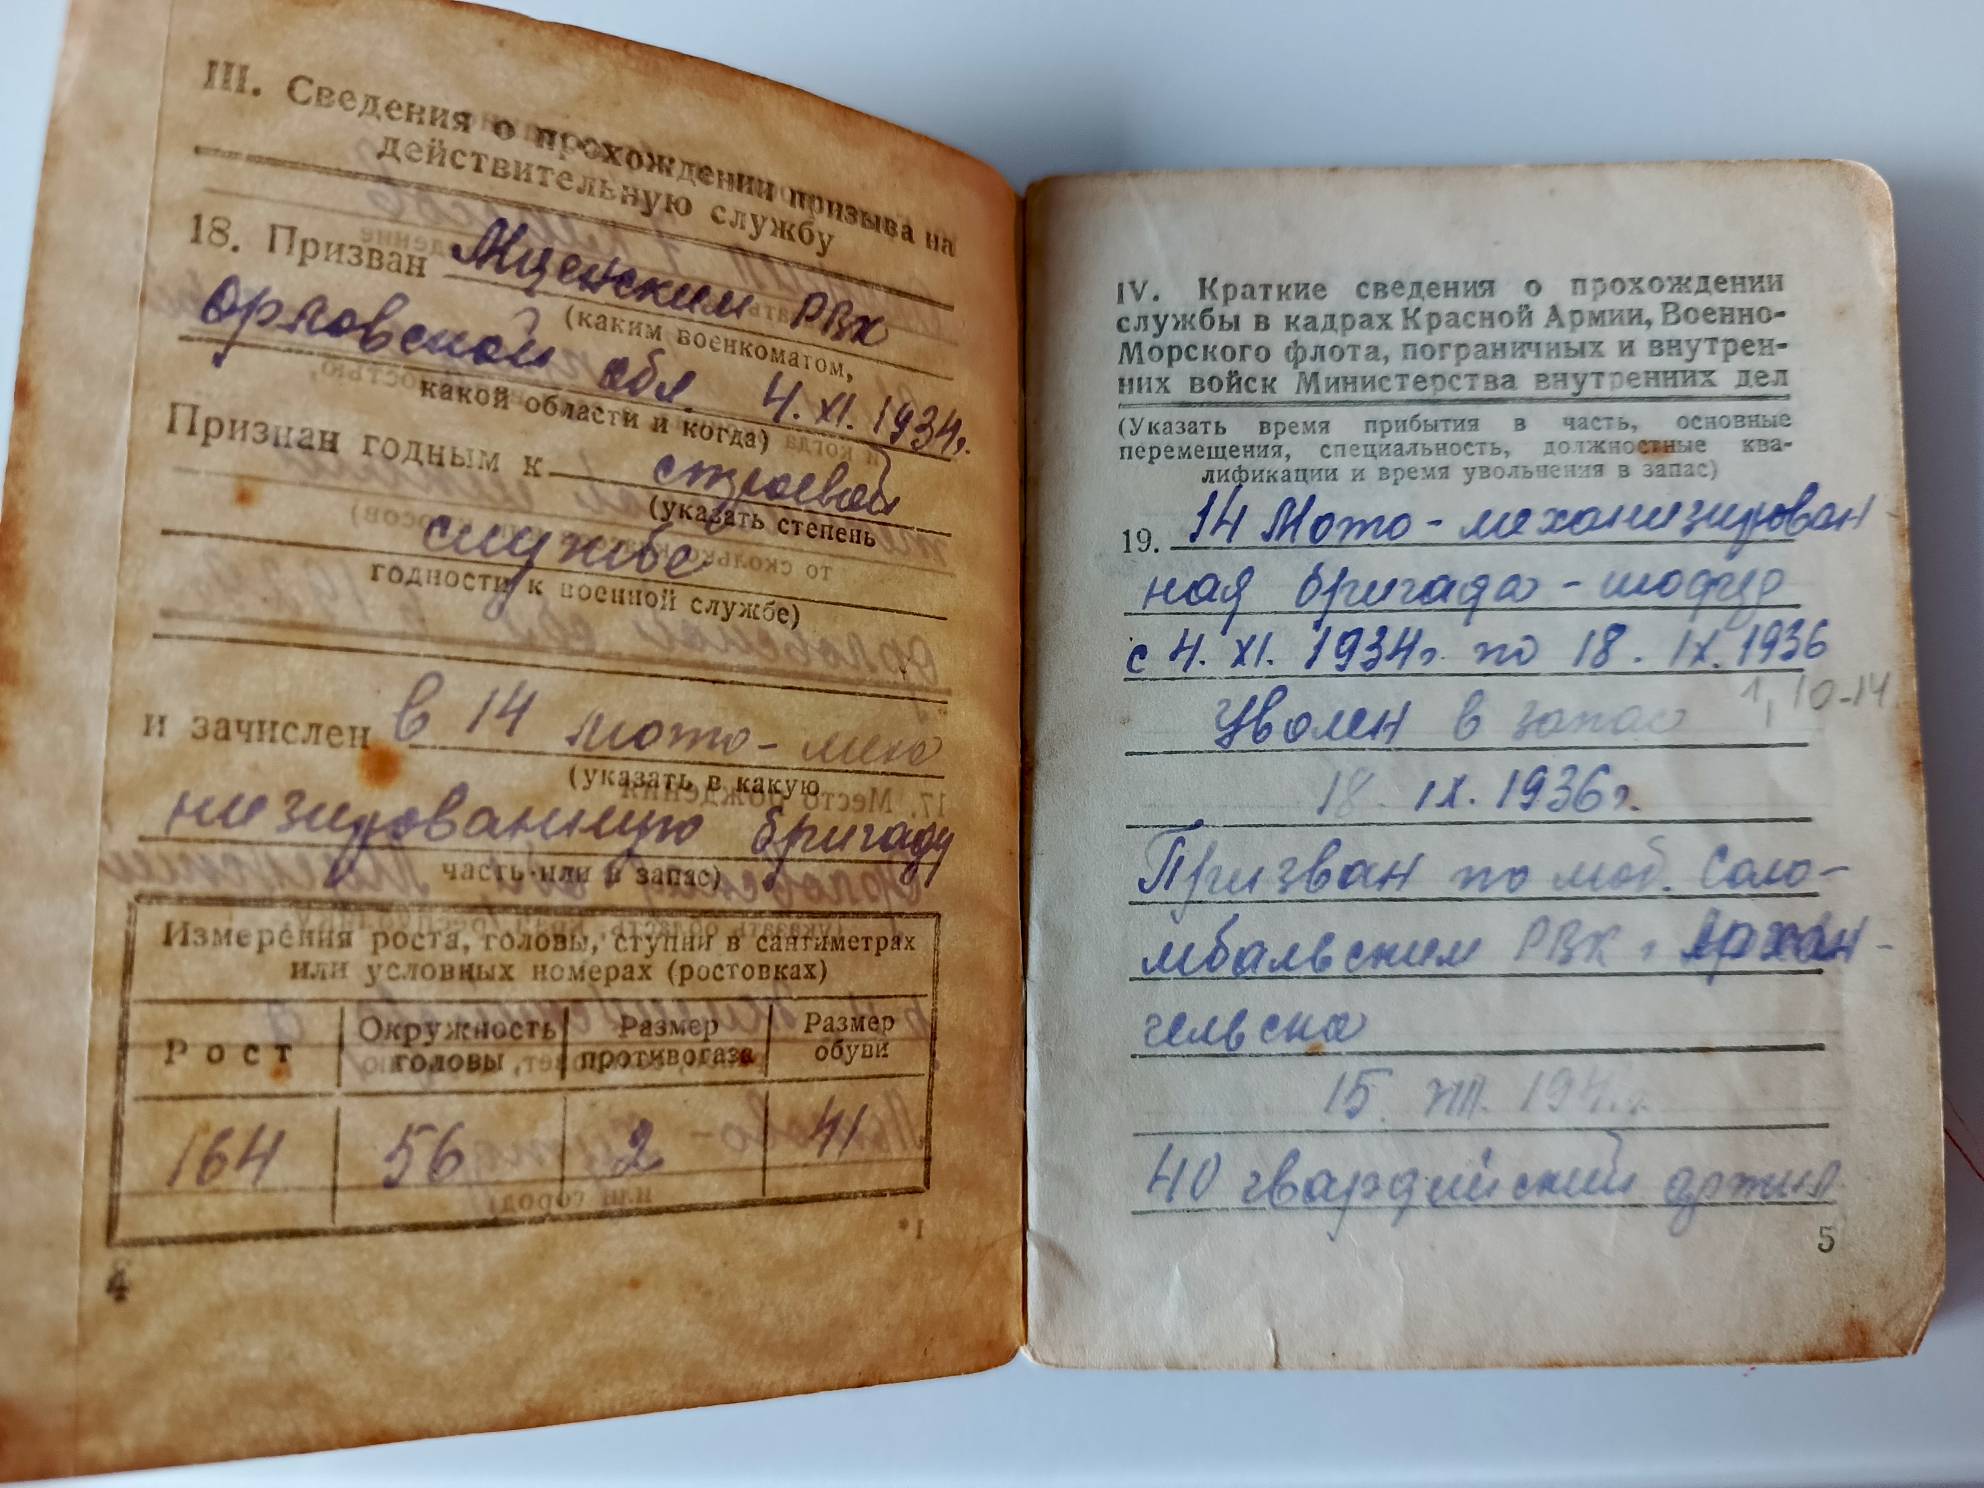 III. Сведения о прохождении призыва на
действительную службу
18. Призван Мценским РВК
(каким военкоматом,
Орловской обл. 4. XI. 1934г.
какой области и когда)
Признан годным к строевой
(указать степень
службе
годности к военной службе)
и зачислен в 14 мото-меха
(указать в какую
низированную бригаду
часть или в запас)
Измерения роста, головы, ступни в сантиметрах
или условных номерах (ростовках)
Рост
Окружность головы
Размер противогаза
Размер обуви
164 56 2 41
1*
4
IV. Краткие сведения о прохождении
службы в кадрах Красной Армии, Военно-
Морского флота, пограничных и внутрен-
них войск Министерства внутренних дел
(Указать время прибытия в часть, основные
перемещения, специальность, должностные ква-
лификации и время увольнения в запас)
19. 14 Мото-механизирован
ная бригада - шофер
с 4. XI. 1934г. по 18. IX. 1936
Уволен в запас 1, 10-14
18 IX. 1936г.
Призван по моб. Соло-
мбальским РВК г. Архан-
гельска
15.
40 гвардейский артил
5